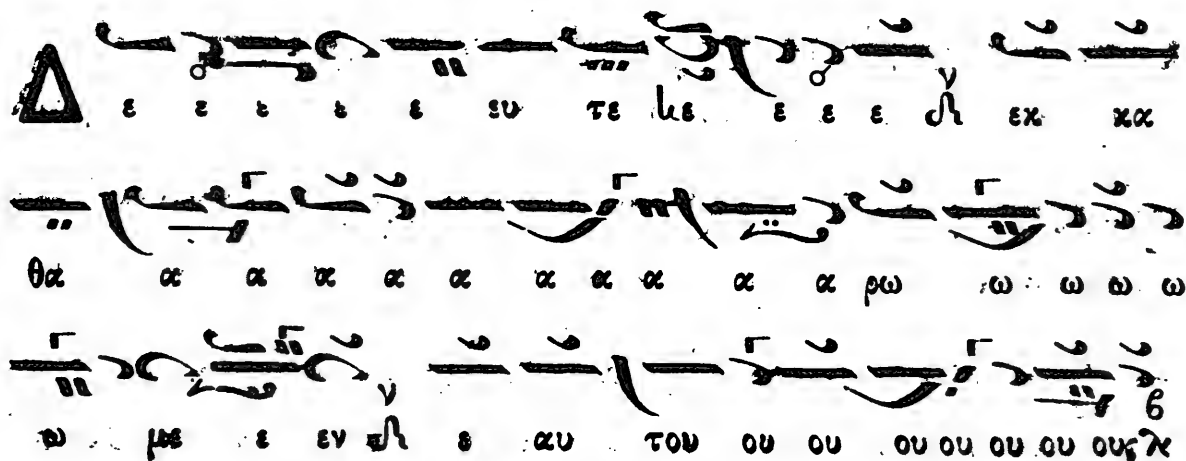 Δ ε ε ε ε ε ευ τε κε ε ε ε εκ κα
θα α α α α α α α α α α ρω ω ω ω ω
ω με ε εν ε αυ του ου ου ου ου ου ου ους